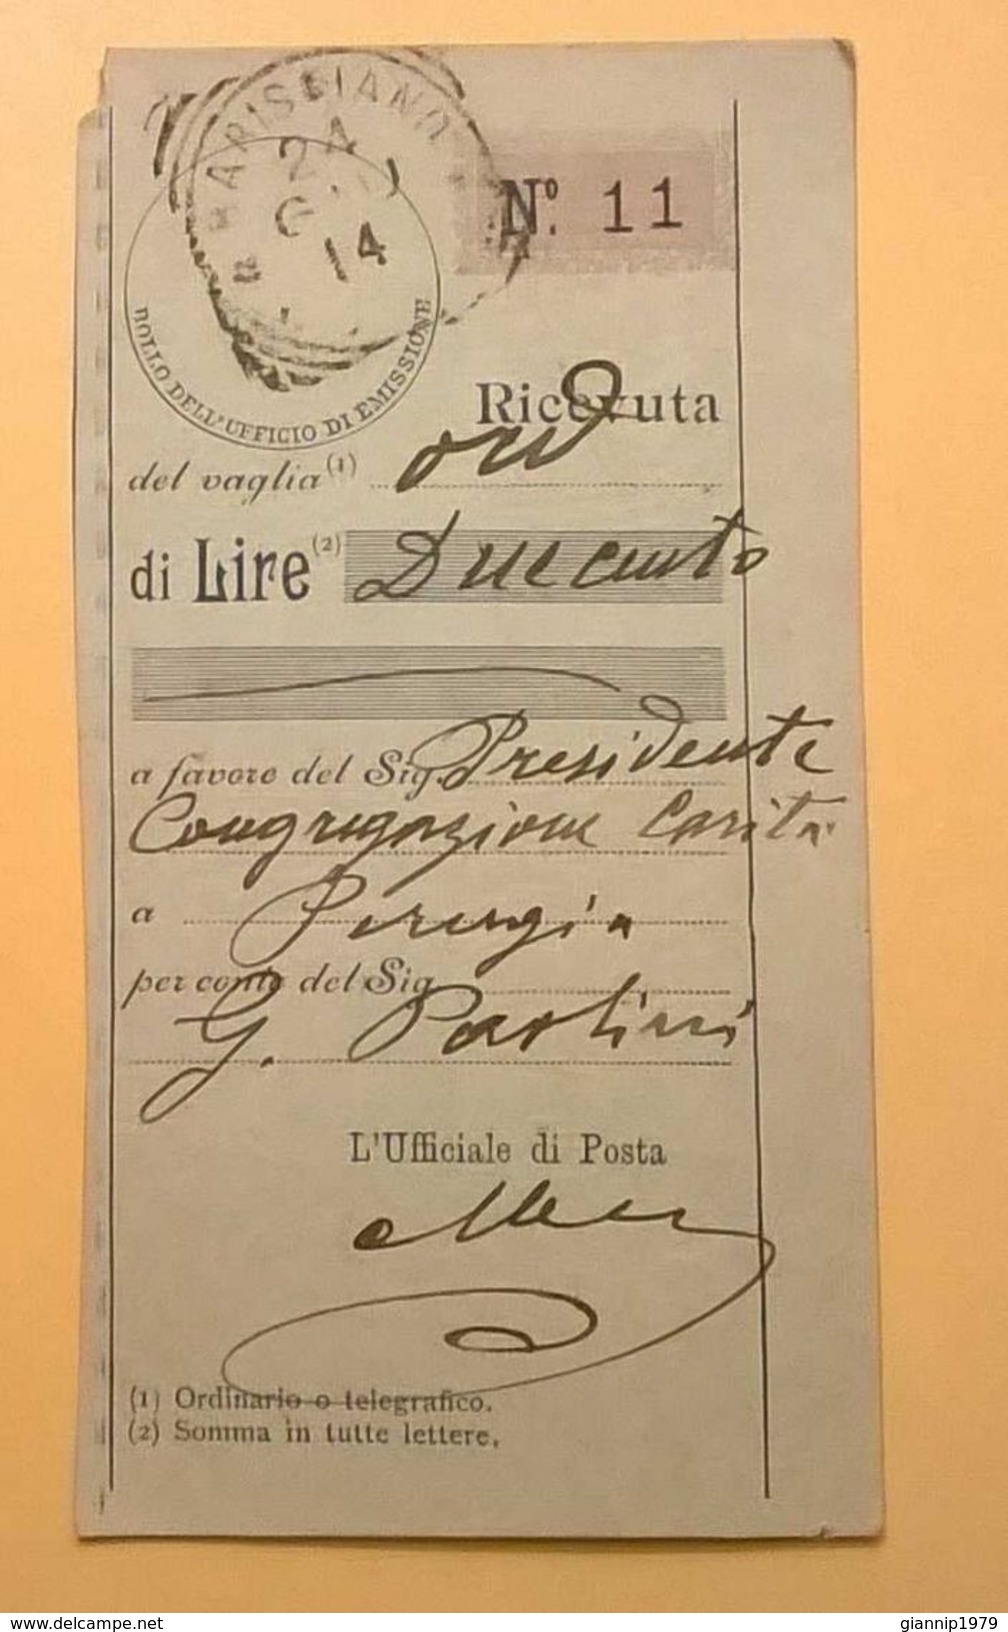 MARSCIANO
24
14
Nº. 11
BOLLO DELL'UFFICIO DI EMISSIONE
Ricevuta
del vaglia (1) ord
di Lire (2) Duecento
a favore del Sig. Presidente
Congregazione Carità
a Perugia
per conto del Sig.
G. Paolini
L'Ufficiale di Posta
(1) Ordinario o telegrafico.
(2) Somma in tutte lettere.
www.delcampe.net
giannip1979